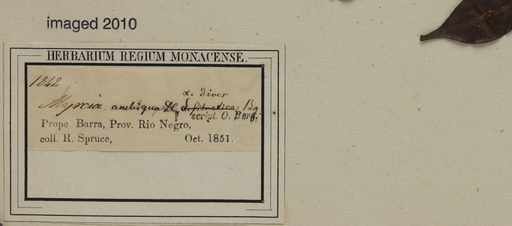 imaged 2010
HERBARIUM REGIUM MONACENSE.
1842
α. diver
Myrcia ambigua DC
script. O. Berg.
Prope Barra, Prov. Rio Negro,
coll. R. Spruce, Oct. 1851.